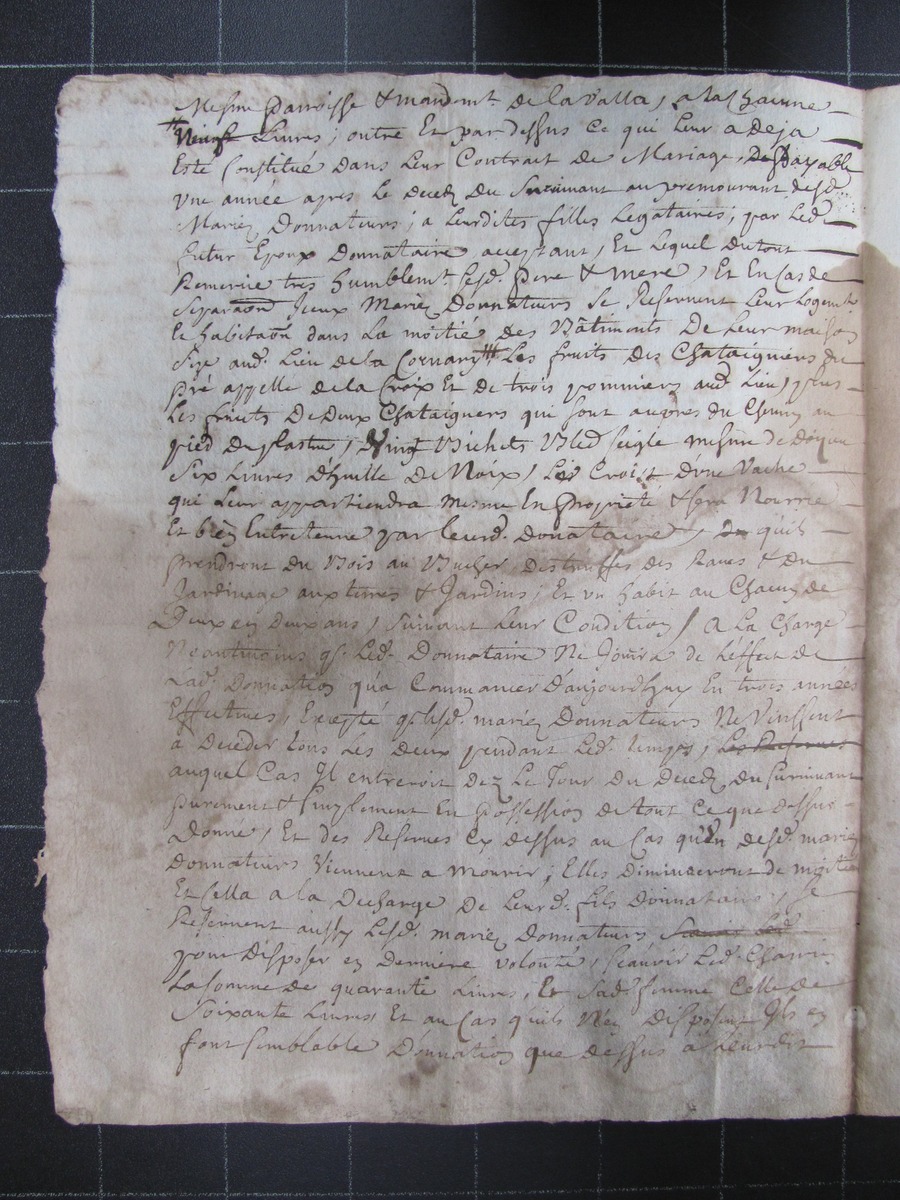 Mesme parroisse & mandemt. de lavalla, a la Chacune
Livres, outre Et par dessus Ce qui Leur a deja
Esté Constitué dans Leur Contrait de Mariage, payable
une année apres Le decedz du Survivant au premourant desd.
Mariez Donnateurs, a leurdites filles Legataires, par Led.
futur Epoux Donnataire acceptant, Et Lequel du tout
Remercie tres humblemt. sesd. pere & mere, Et En Cas de
Separaon Iceux Mariez Donnateurs Se Reservent Leur Logemt
Et habitaon dans La moitié des Bâtiments De Leur maison
Size aud. Lieu de la Les fruits des Chataigniers du
pré appellé de la Croix Et de trois pommiers aud. Lieu, plus
Les fruits De deux Chataigners qui sont aupres du Chemin au
pied du, Vingt Bichets Bled seigle mesure de
Six Livres d'huille de Noix, Le Croist d'une Vache
qui Leur appartiendra mesme En propriété & sera Nourrie
Et bien Entretenue par leurd. donataire, qu'ils
prendront du Bois au Bucher, des truffes des Raves & du
Jardinage aux terres & Jardins, Et un habit au Chacun de
Deux en deux ans, suivant Leur Condition, A La Charge
Neantmoins q. Led. Donnataire Ne Jouira de L'effect de
Lad. Donnation qu'a Commancer d'aujourdhuy En trois années
Effectives, Excepté q. lesd. mariez Donnateurs Ne Vinssent
a deceder tous Les deux pendant Led. temps, Les Reserves
auquel Cas Il entreroit dez Le Jour du decedz du Survivant
purement & simplement En possession de tout Ce que dessus
Donné, Et des Reserves cy dessus au Cas qu'un desd. mariez
Donnateurs Viennent a Mourir, Elles diminueront de moitié
Et Cella a la decharge de Leurd. fils Donnataire, Se
Reservent aussy Lesd. mariez Donnateurs
pour disposer en derniere volonté, sçauoir Led.
La somme de quarante Livres, Et Sad. femme Celle de
Soixante Livres, Et au Cas qu'ils N'en disposent Ils en
font semblable Donnation que dessus a Leurdit